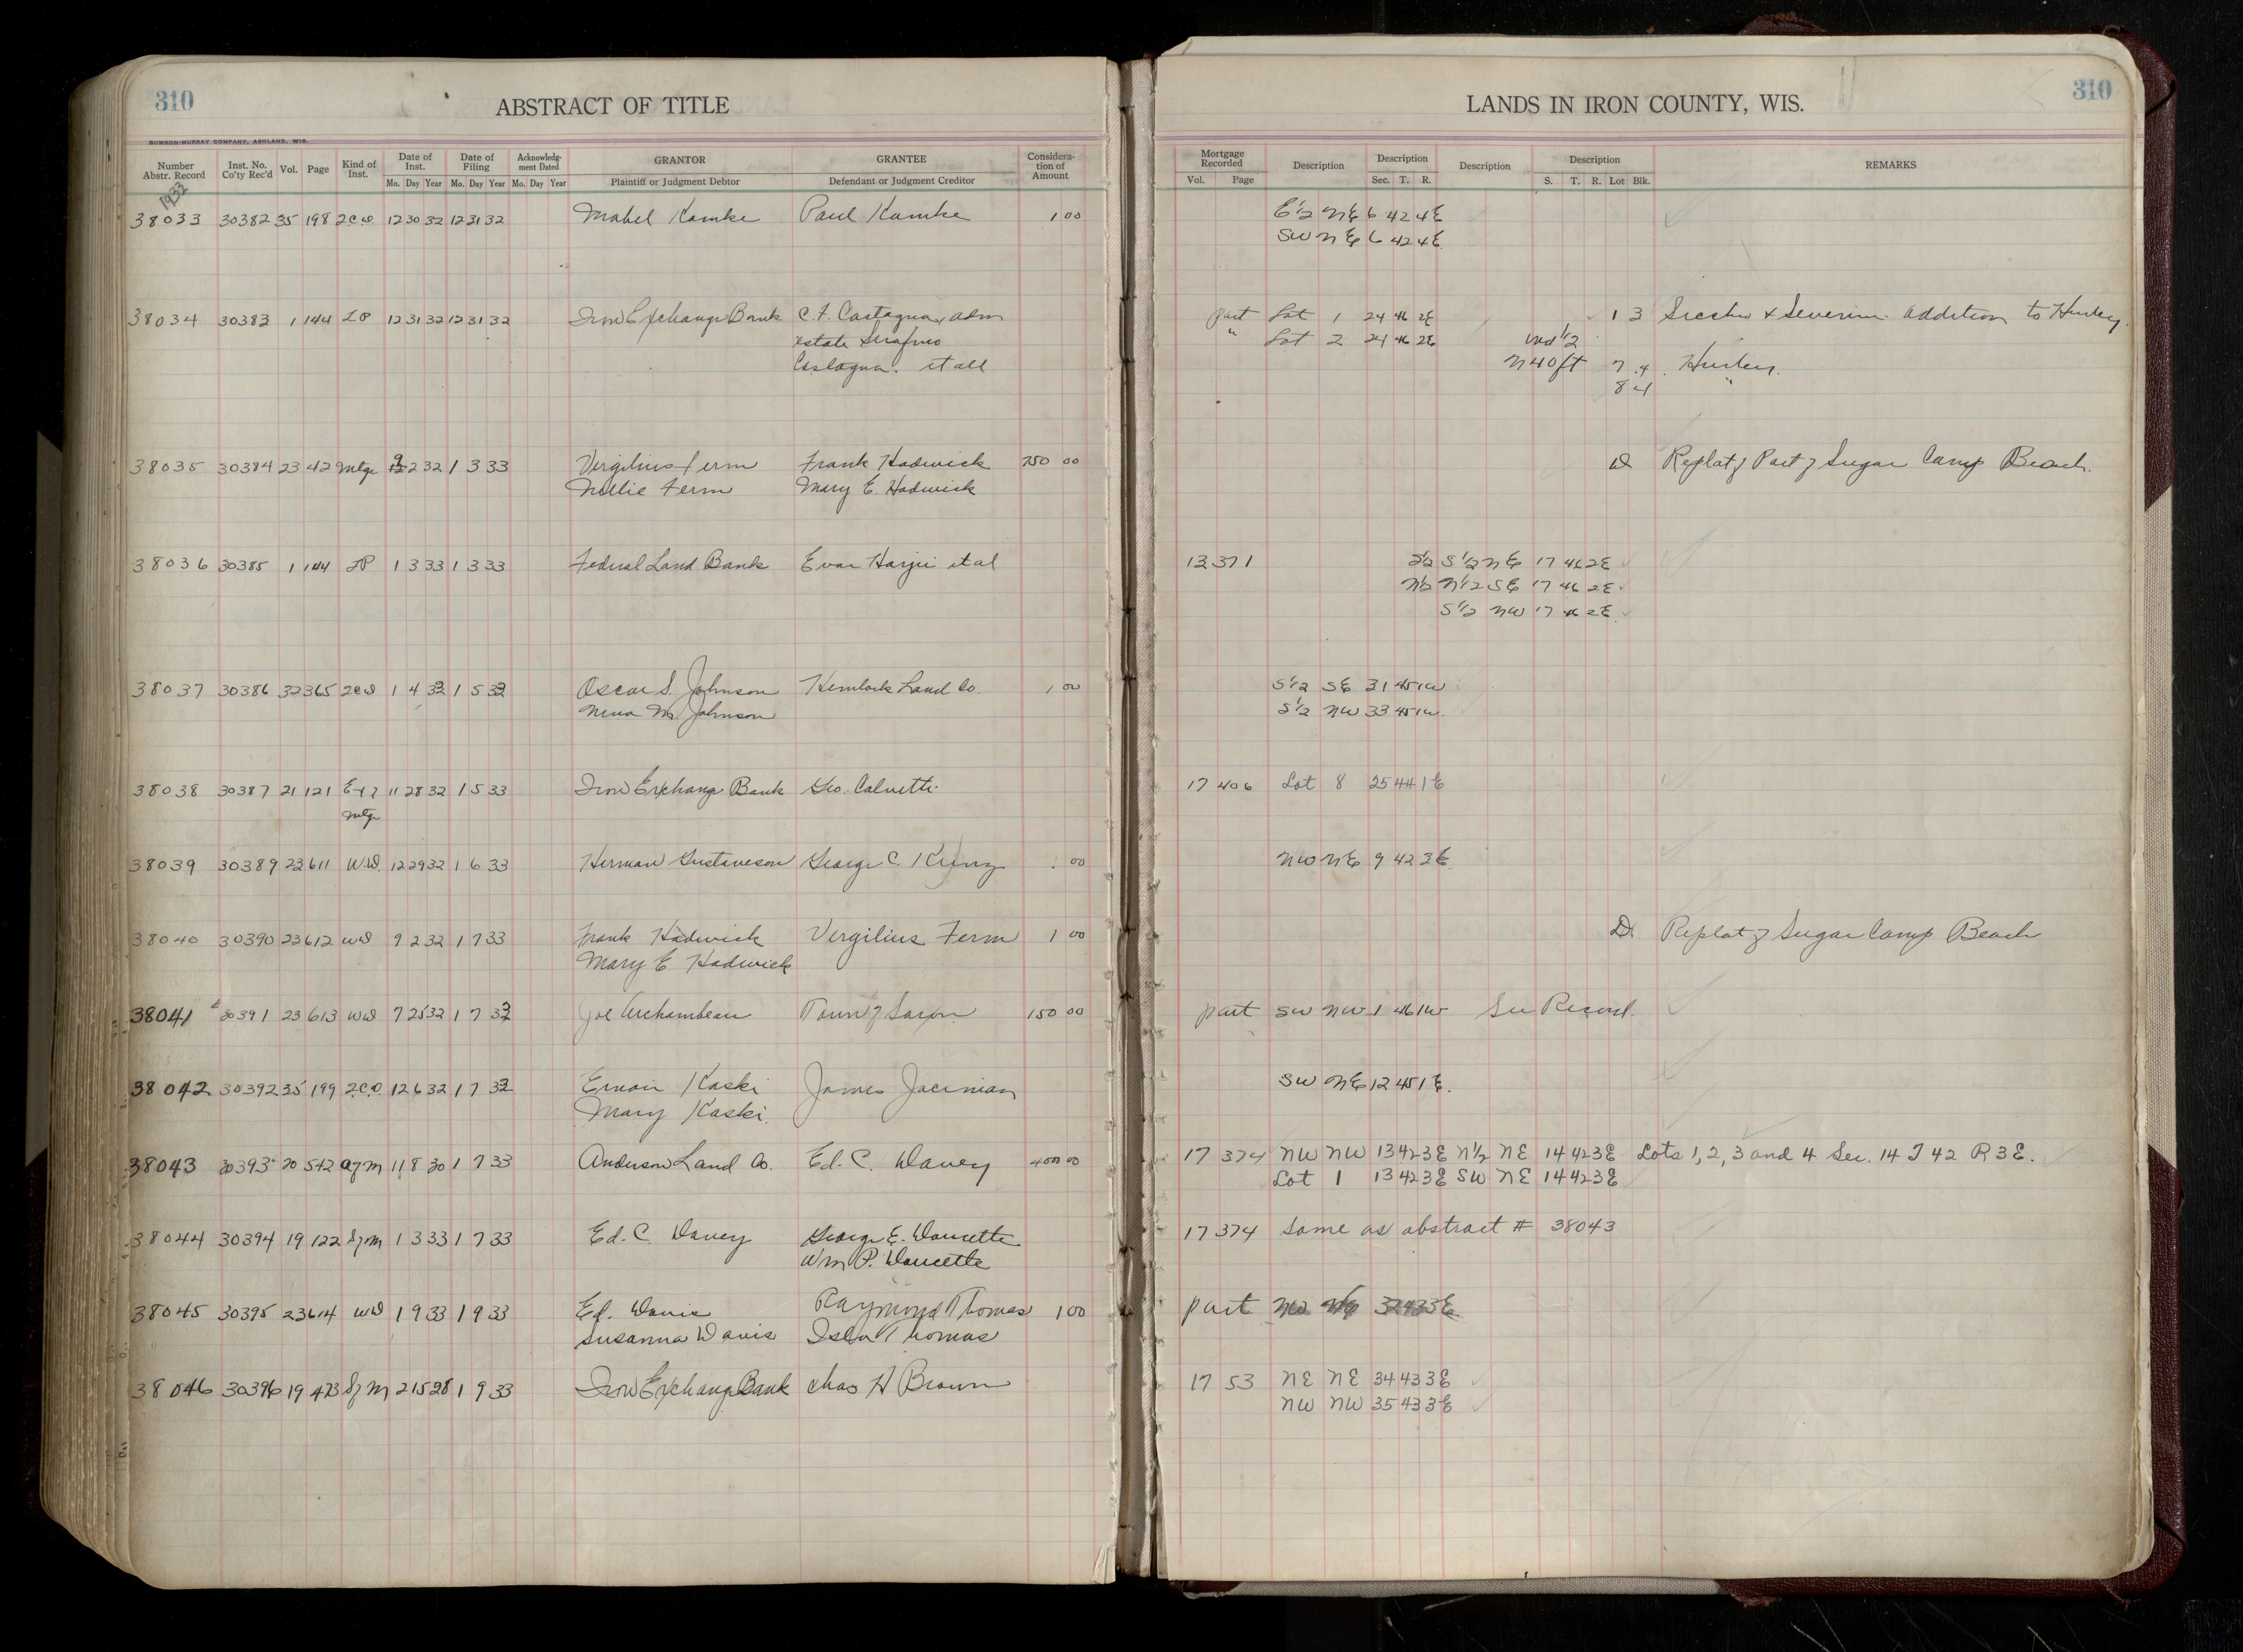 310
ABSTRACT OF TITLE
BOWRON-MURRAY COMPANY, ASHLAND, WIS.
Number Abstr. Record | Inst. No. Co'ty Rec'd | Vol. | Page | Kind of Inst. | Date of Inst. Mo. Day Year | Date of Filing Mo. Day Year | Acknowledgment Dated Mo. Day Year | GRANTOR Plaintiff or Judgment Debtor | GRANTEE Defendant or Judgment Creditor | Consideration of Amount
1933
38033 30382 35 198 2CD 12 30 32 12 31 32 Mabel Kamke Paul Kamke 1 00
38034 30383 1 144 LP 12 31 32 12 31 32 Iron Exchange Bank C. F. Castagna, adm
estate Serafino
Castagna. et all
38035 30384 23 42 Mtge 9 2 32 1 3 33 Virgilius Ferm Frank Hadwick 750 00
Nellie Ferm Mary E. Hadwick
38036 30385 1 144 LP 1 3 33 1 3 33 Federal Land Bank Evar Harju et al
38037 30386 32 365 2CD 1 4 33 1 5 33 Oscar S. Johnson Hemlock Land Co. 1 00
Nina M. Johnson
38038 30387 21 121 Ext 11 28 32 1 5 33 Iron Exchange Bank Geo. Calvetti
Mtge
38039 30389 23 611 W.D. 12 29 32 1 6 33 Herman Gustaveson George C. Kunz 1 00
38040 30390 23 612 WD 9 2 32 1 7 33 Frank Hadwick Virgilius Ferm 1 00
Mary E Hadwick
38041 30391 23 613 WD 7 25 32 1 7 33 Joe Archambeau Town of Saxon 150 00
38042 30392 35 199 2.C.D. 12 6 32 1 7 33 Kaski James
Mary Kaski
38043 30393 20 542 Ag M 11 8 30 1 7 33 Anderson Land Co. Ed. C. Davey 400 00
38044 30394 19 122 Sg M 1 3 33 1 7 33 Ed. C. Davey George E. Doucette
Wm P. Doucette
38045 30395 23 614 WD 1 9 33 1 9 33 Ed. Davis Raymond Thomas 1 00
Susanna Davis Thomas
38046 30396 19 473 Sg M 2 15 28 1 9 33 Iron Exchange Bank Chas H Brown
LANDS IN IRON COUNTY, WIS.
310
Mortgage Recorded Vol. Page | Description | Description Sec. T. R. | Description | Description S. T. R. Lot Blk. | REMARKS
E½ NE 6 42 4E
SW NE 6 42 4E
part Lot 1 24 46 2E 1 3 & Severin addition to Hurley
" Lot 2 24 46 2E und ½
N 40 ft 7 4 Hurley.
8 4 "
D Replat of Part of Sugar Camp Beach.
13 371 S½ S½ NE 17 46 2E
N½ N½ SE 17 46 2E
S½ NW 17 46 2E
S½ SE 31 45 1W
S½ NW 33 45 1W.
17 406 Lot 8 25 44 1E
NW NE 9 42 3E
D. Replat of Sugar Camp Beach
part SW NW 1 46 1W See Record.
SW NE 12 45 1E.
17 374 NW NW 13 42 3E N½ NE 14 42 3E Lots 1, 2, 3 and 4 Sec. 14 T 42 R 3E.
Lot 1 13 42 3E SW NE 14 42 3E
17 374 Same as abstract # 38043
part
17 53 NE NE 34 43 3E
NW NW 35 43 3E